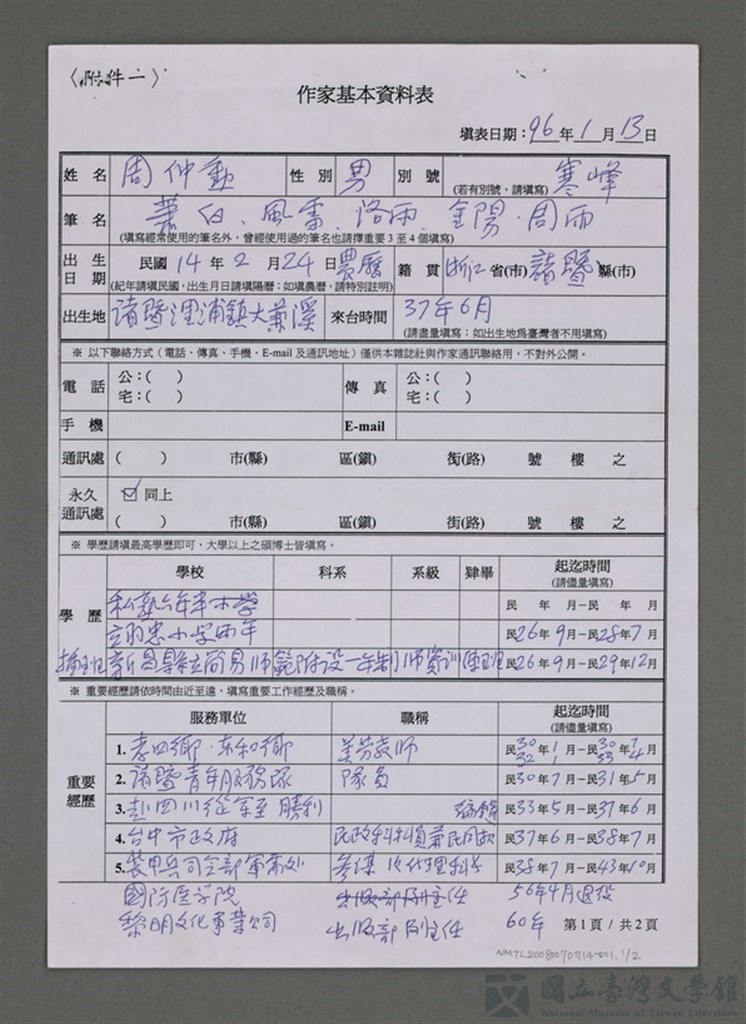 〈附件一〉
作家基本資料表
填表日期：96年1月13日
姓 名 周仲勳 性 別 男 別 號 (若有別號，請填寫) 寒峰
筆 名 蕭白、風雷、洛雨、金陽、周雨
(填寫經常使用的筆名外，曾經使用過的筆名也請擇重要3至4個填寫)
出 生 日 期 民國14年2月24日農曆 籍 貫 浙江省(市)諸暨縣(市)
(紀年請填民國，出生月日請填陽曆；如填農曆，請特別註明)
出生地 諸暨浬浦鎮大兼溪 來台時間 37年6月
(請盡量填寫；如出生地為臺灣者不用填寫)
※ 以下聯絡方式（電話、傳真、手機、E-mail 及通訊地址）僅供本雜誌社與作家通訊聯絡用，不對外公開。
電 話 公：( ) 傳 真 公：( )
宅：( ) 宅：( )
手 機 E-mail
通訊處 ( ) 市(縣) 區(鎮) 街(路) 號 樓 之
永久通訊處 ☑ 同上
( ) 市(縣) 區(鎮) 街(路) 號 樓 之
※ 學歷請填最高學歷即可，大學以上之碩博士皆填寫。
學 歷 學校 科系 系級 肄畢 起迄時間
(請儘量填寫)
私塾六年半小學 民 年 月－民 年 月
翊忠小学兩年 民26年9月－民28年7月
新昌縣立简易师範附设一年制师資训練班 民26年9月－民29年12月
※ 重要經歷請依時間由近至遠，填寫重要工作經歷及職稱。
重要經歷 服務單位 職稱 起迄時間
(請儘量填寫)
1.孝四鄉·東和鄉 美劳教师 民30年1月－民30年7月
32 1 33 4
2.諸暨青年服務隊 隊員 民30年7月－民31年5月
3.赴四川從軍至勝利 編輯 民33年5月－民37年6月
4.台中市政府 民政科科員兼民回扱 民37年6月－民38年7月
5.裝甲兵司令部軍需处 参謀 代理科长 民38年7月－民43年10月
国防医学院 出版部副主任 56年4月退役
黎明文化事業公司 出版部副主任 60年
第1頁 / 共2頁
NMTL20080070714-001. 1/2
國立臺灣文學館
National Museum of Taiwan Literature